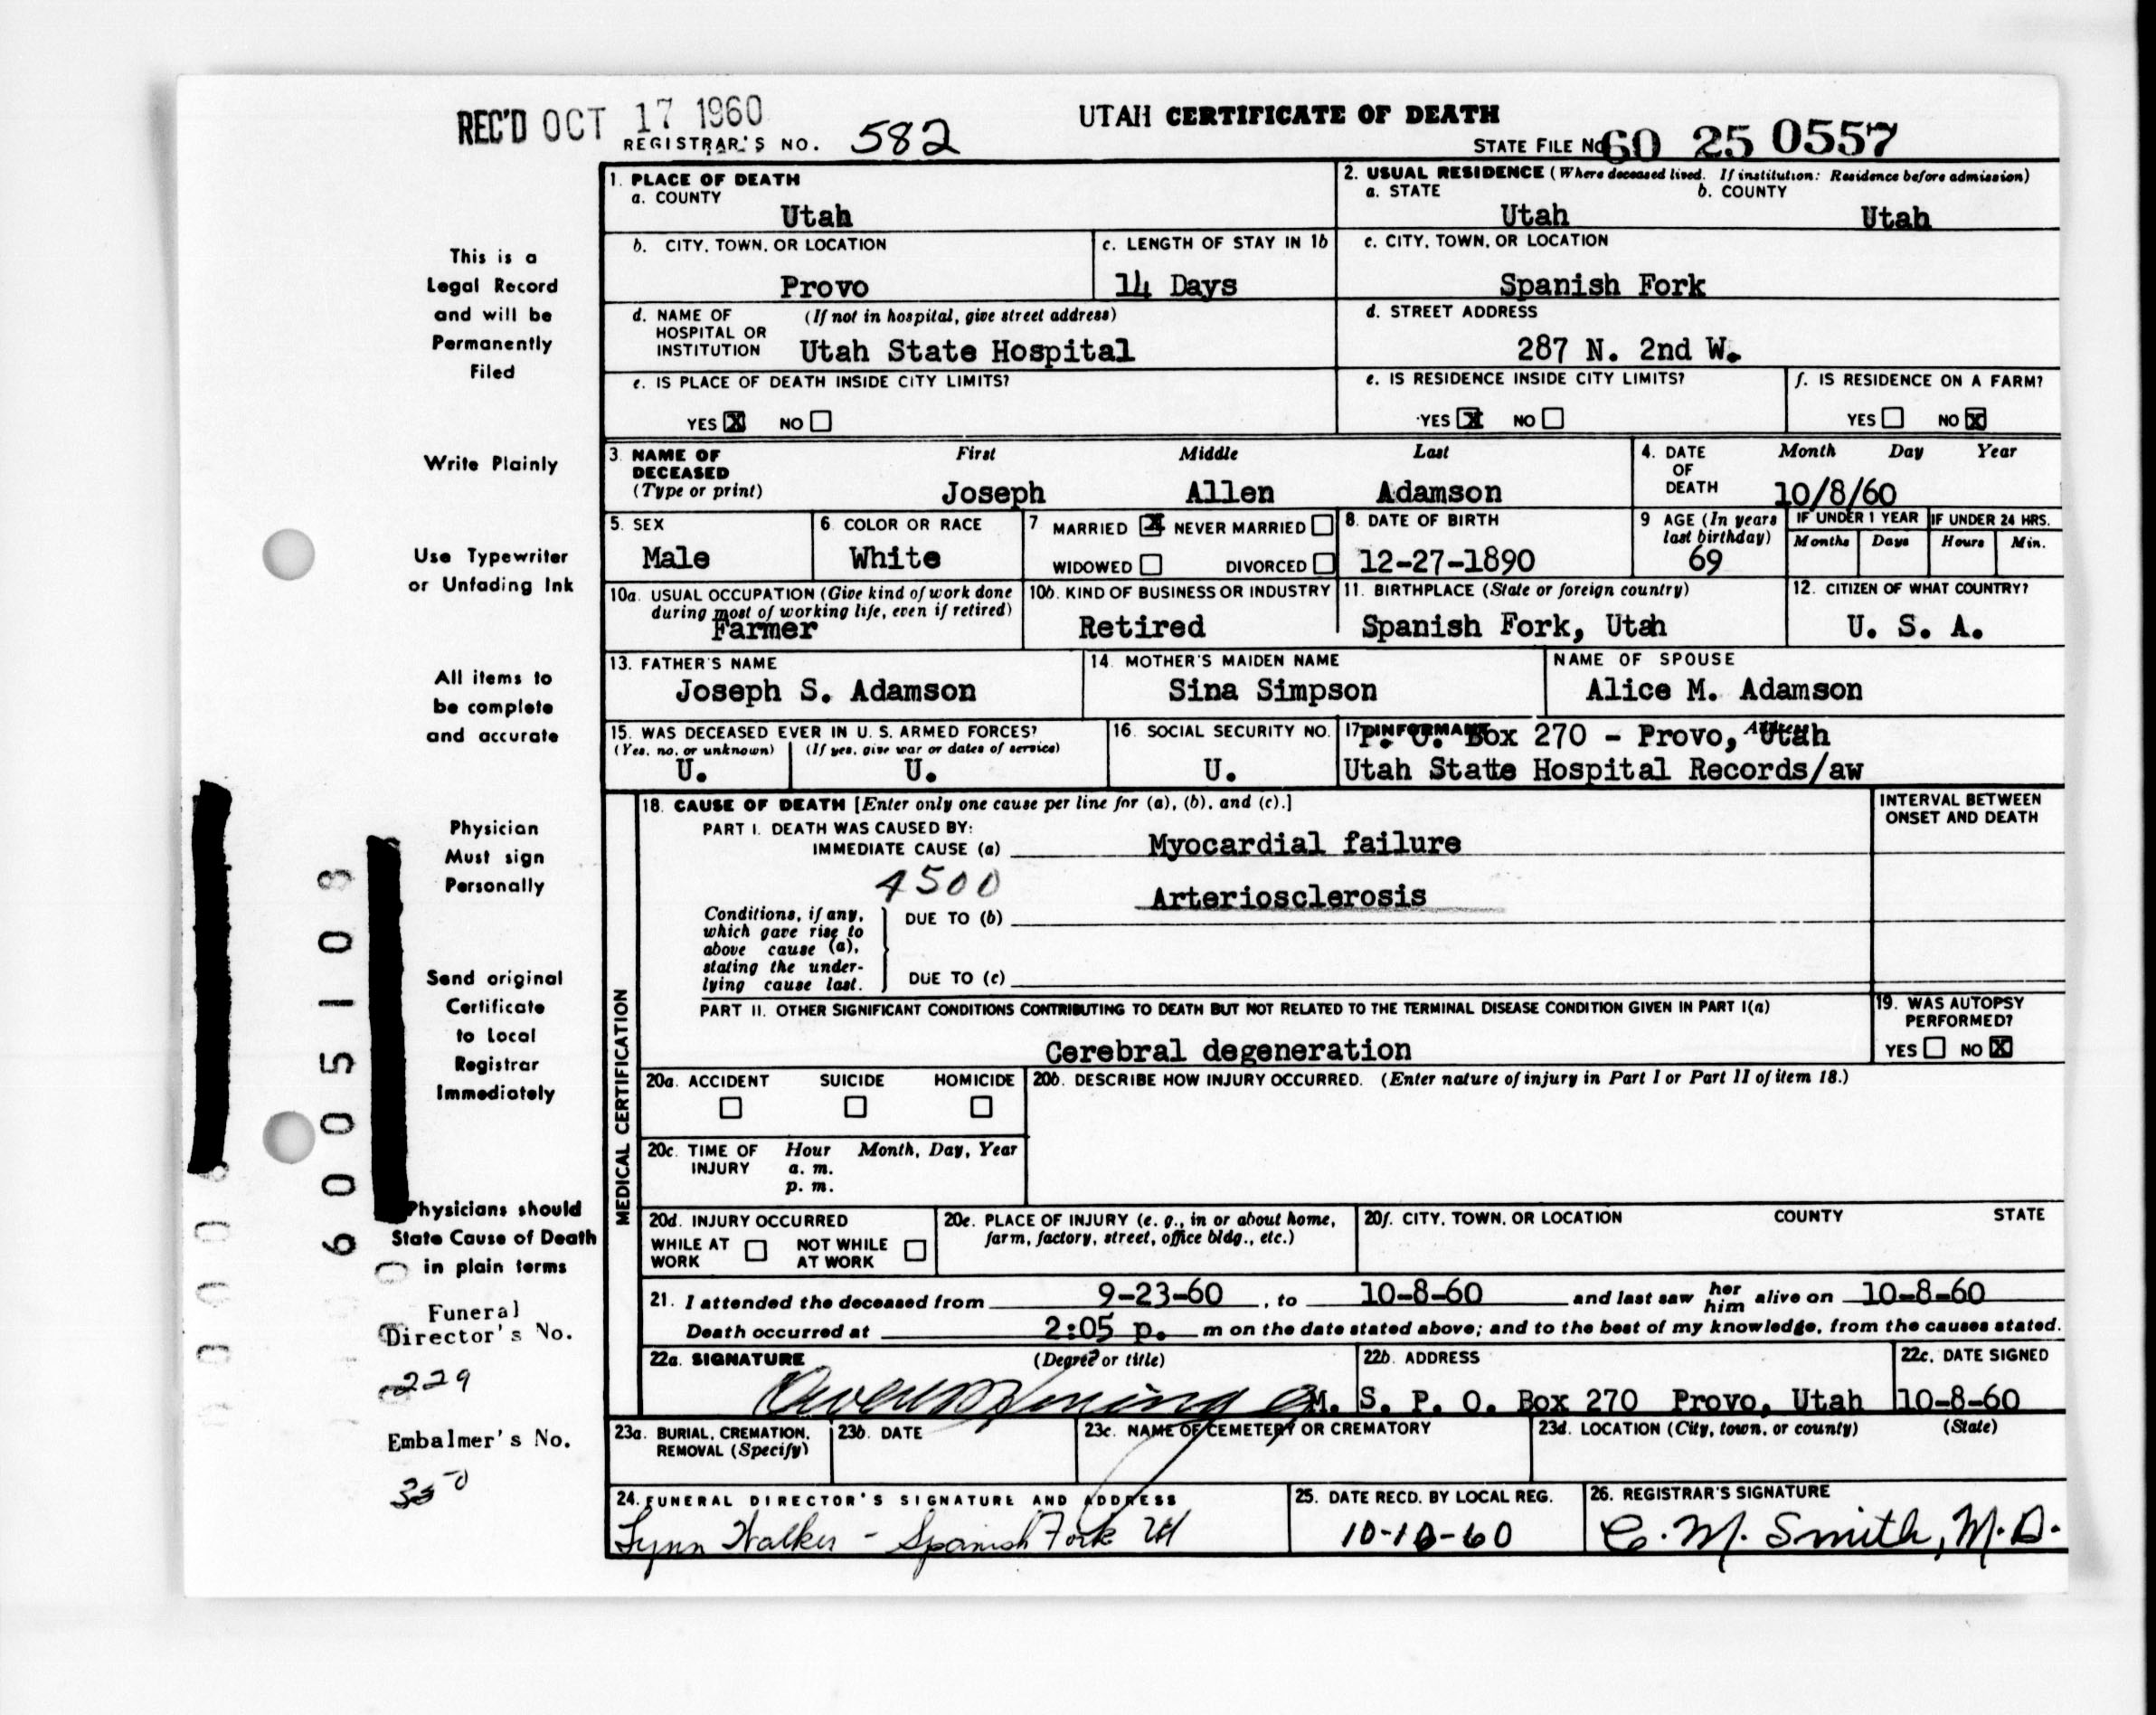 REC'D OCT 17 1960
UTAH CERTIFICATE OF DEATH
REGISTRAR'S NO. 582
STATE FILE NO. 60 25 0557
This is a
Legal Record
and will be
Permanently
Filed
Write Plainly
Use Typewriter
or Unfading Ink
All items to
be complete
and accurate
Physician
Must sign
Personally
Send original
Certificate
to Local
Registrar
Immediately
Physicians should
State Cause of Death
in plain terms
Funeral
Director's No.
229
Embalmer's No.
350
6005108
1. PLACE OF DEATH
a. COUNTY
Utah
2. USUAL RESIDENCE (Where deceased lived. If institution: Residence before admission)
a. STATE b. COUNTY
Utah Utah
b. CITY, TOWN, OR LOCATION
Provo
c. LENGTH OF STAY IN 1b
14 Days
c. CITY, TOWN, OR LOCATION
Spanish Fork
d. NAME OF (If not in hospital, give street address)
HOSPITAL OR
INSTITUTION Utah State Hospital
d. STREET ADDRESS
287 N. 2nd W.
e. IS PLACE OF DEATH INSIDE CITY LIMITS?
YES X NO
e. IS RESIDENCE INSIDE CITY LIMITS?
YES X NO
f. IS RESIDENCE ON A FARM?
YES NO X
3. NAME OF First Middle Last
DECEASED
(Type or print) Joseph Allen Adamson
4. DATE Month Day Year
OF
DEATH 10/8/60
5. SEX
Male
6. COLOR OR RACE
White
7 MARRIED X NEVER MARRIED
WIDOWED DIVORCED
8. DATE OF BIRTH
12-27-1890
9 AGE (In years
last birthday)
69
IF UNDER 1 YEAR IF UNDER 24 HRS.
Months Days Hours Min.
10a. USUAL OCCUPATION (Give kind of work done
during most of working life, even if retired)
Farmer
10b. KIND OF BUSINESS OR INDUSTRY
Retired
11. BIRTHPLACE (State or foreign country)
Spanish Fork, Utah
12. CITIZEN OF WHAT COUNTRY?
U. S. A.
13. FATHER'S NAME
Joseph S. Adamson
14. MOTHER'S MAIDEN NAME
Sina Simpson
NAME OF SPOUSE
Alice M. Adamson
15. WAS DECEASED EVER IN U. S. ARMED FORCES?
(Yes, no, or unknown) (If yes, give war or dates of service)
U. U.
16. SOCIAL SECURITY NO.
U.
17 INFORMANT Address
P. O. Box 270 - Provo, Utah
Utah Statte Hospital Records/aw
MEDICAL CERTIFICATION
18. CAUSE OF DEATH [Enter only one cause per line for (a), (b), and (c).]
INTERVAL BETWEEN
ONSET AND DEATH
PART I. DEATH WAS CAUSED BY:
IMMEDIATE CAUSE (a) Myocardial failure
4500
Arteriosclerosis
Conditions, if any,
which gave rise to
above cause (a),
stating the under-
lying cause last.
DUE TO (b)
DUE TO (c)
PART II. OTHER SIGNIFICANT CONDITIONS CONTRIBUTING TO DEATH BUT NOT RELATED TO THE TERMINAL DISEASE CONDITION GIVEN IN PART I(a)
Cerebral degeneration
19. WAS AUTOPSY
PERFORMED?
YES NO X
20a. ACCIDENT SUICIDE HOMICIDE
20b. DESCRIBE HOW INJURY OCCURRED. (Enter nature of injury in Part I or Part II of item 18.)
20c. TIME OF Hour Month, Day, Year
INJURY a. m.
p. m.
20d. INJURY OCCURRED
WHILE AT NOT WHILE
WORK AT WORK
20e. PLACE OF INJURY (e. g., in or about home,
farm, factory, street, office bldg., etc.)
20f. CITY, TOWN, OR LOCATION COUNTY STATE
21. I attended the deceased from 9-23-60, to 10-8-60 and last saw her him alive on 10-8-60
Death occurred at 2:05 p. m on the date stated above; and to the best of my knowledge, from the causes stated.
22a. SIGNATURE (Degree or title)
M.
22b. ADDRESS
S. P. O. Box 270 Provo, Utah
22c. DATE SIGNED
10-8-60
23a. BURIAL, CREMATION,
REMOVAL (Specify)
23b. DATE
23c. NAME OF CEMETERY OR CREMATORY
23d. LOCATION (City, town, or county) (State)
24. FUNERAL DIRECTOR'S SIGNATURE AND ADDRESS
Lynn Walker - Spanish Fork Ut
25. DATE RECD. BY LOCAL REG.
10-10-60
26. REGISTRAR'S SIGNATURE
C. M. Smith, M.D.